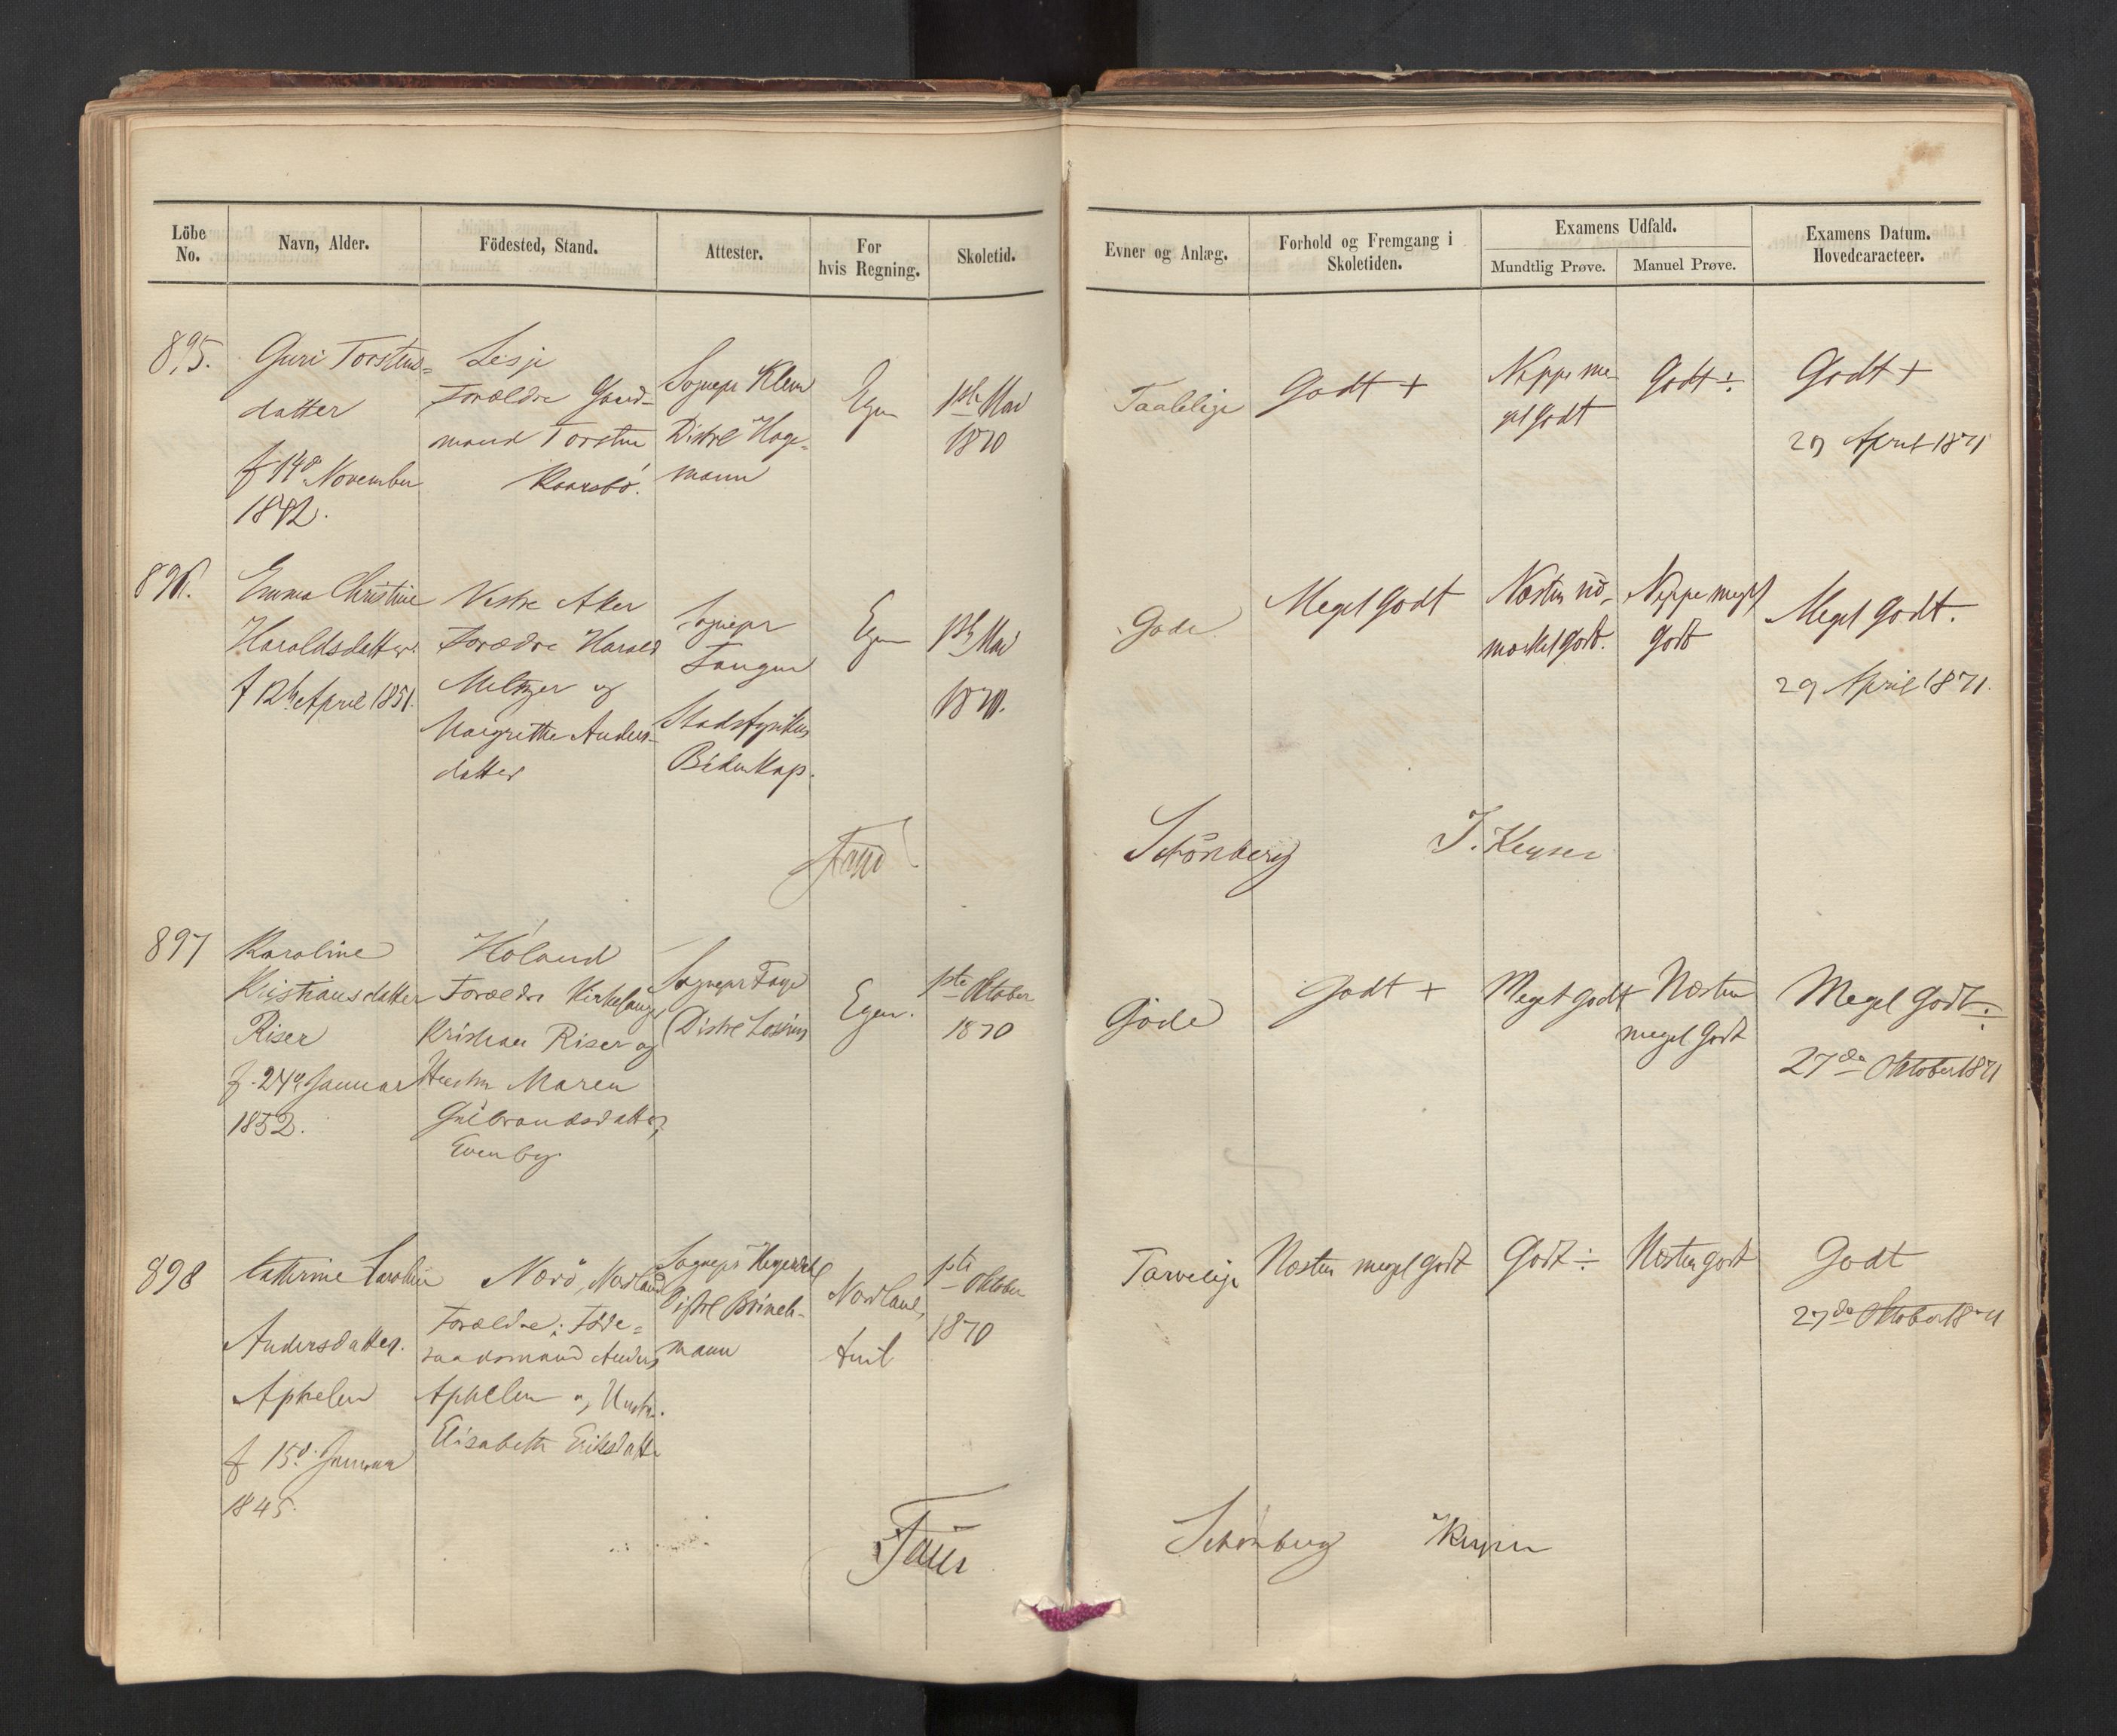 Löbe No.
Navn, Alder.
Födested, Stand.
Attester.
For hvis Regning.
Skoletid.
Evner og Anlæg.
Forhold og Fremgang i Skoletiden.
Examens Udfald.
Mundtlig Prøve.
Manuel Prøve.
Examens Datum.
Hovedcaracteer.
895.
Guri Torstens=
datter
f 14d November
1842.
Lesje
Forældre Gaard-
mand Torsten
Sognepr Klem
Distrl Hage-
mann
Egen
1ste Mai
1870
Taalelige
Godt +
Neppe me-
get godt
Godt ÷
Godt +
29 April 1871
896.
Emma Christine
Haroldsdatter
f 12te April 1851.
Vestre Aker
Forædre Harald
Meltzer og
Margrethe Anders-
datter
Sognepr
Tangen
Stadsfysikus
Bidenkap.
Egen
1ste Mai
1870.
Gode
Meget Godt
Næsten ud-
mærket godt.
Neppe meget
godt
Meget Godt.
29 April 1871.
Faye
Schönberg
J. Keyser
897
Karoline
Kristiansdatter
Riser
f. 24d Januar
1852.
Höland
Forældre Kirkesanger
Kristian Riser og
Hustru Maren
Gulbrandsdatter,
Evenby.
Sognepr Faye
Distrl Lossius
Egen.
1ste Oktober
1870
Gode
Godt +
Meget godt
Næsten
meget Godt
Meget Godt ÷
27de Oktober 1871
898
Cathrine Karoline
Andersdatter.
Aphelen
f 15d. Januar
1845.
Nærö, Nordland
Forældre: Föde=
raadsmand Anders
Aphelen og Hustru
Elisabeth Eriksdatter
Sognepr
Distrl
mann
Nordlands
Amt
1ste Oktober
1870
Tarvelige
Næsten meget godt
Godt ÷
Næsten godt
Godt
27de Oktober 1871
Schönberg
Keyser